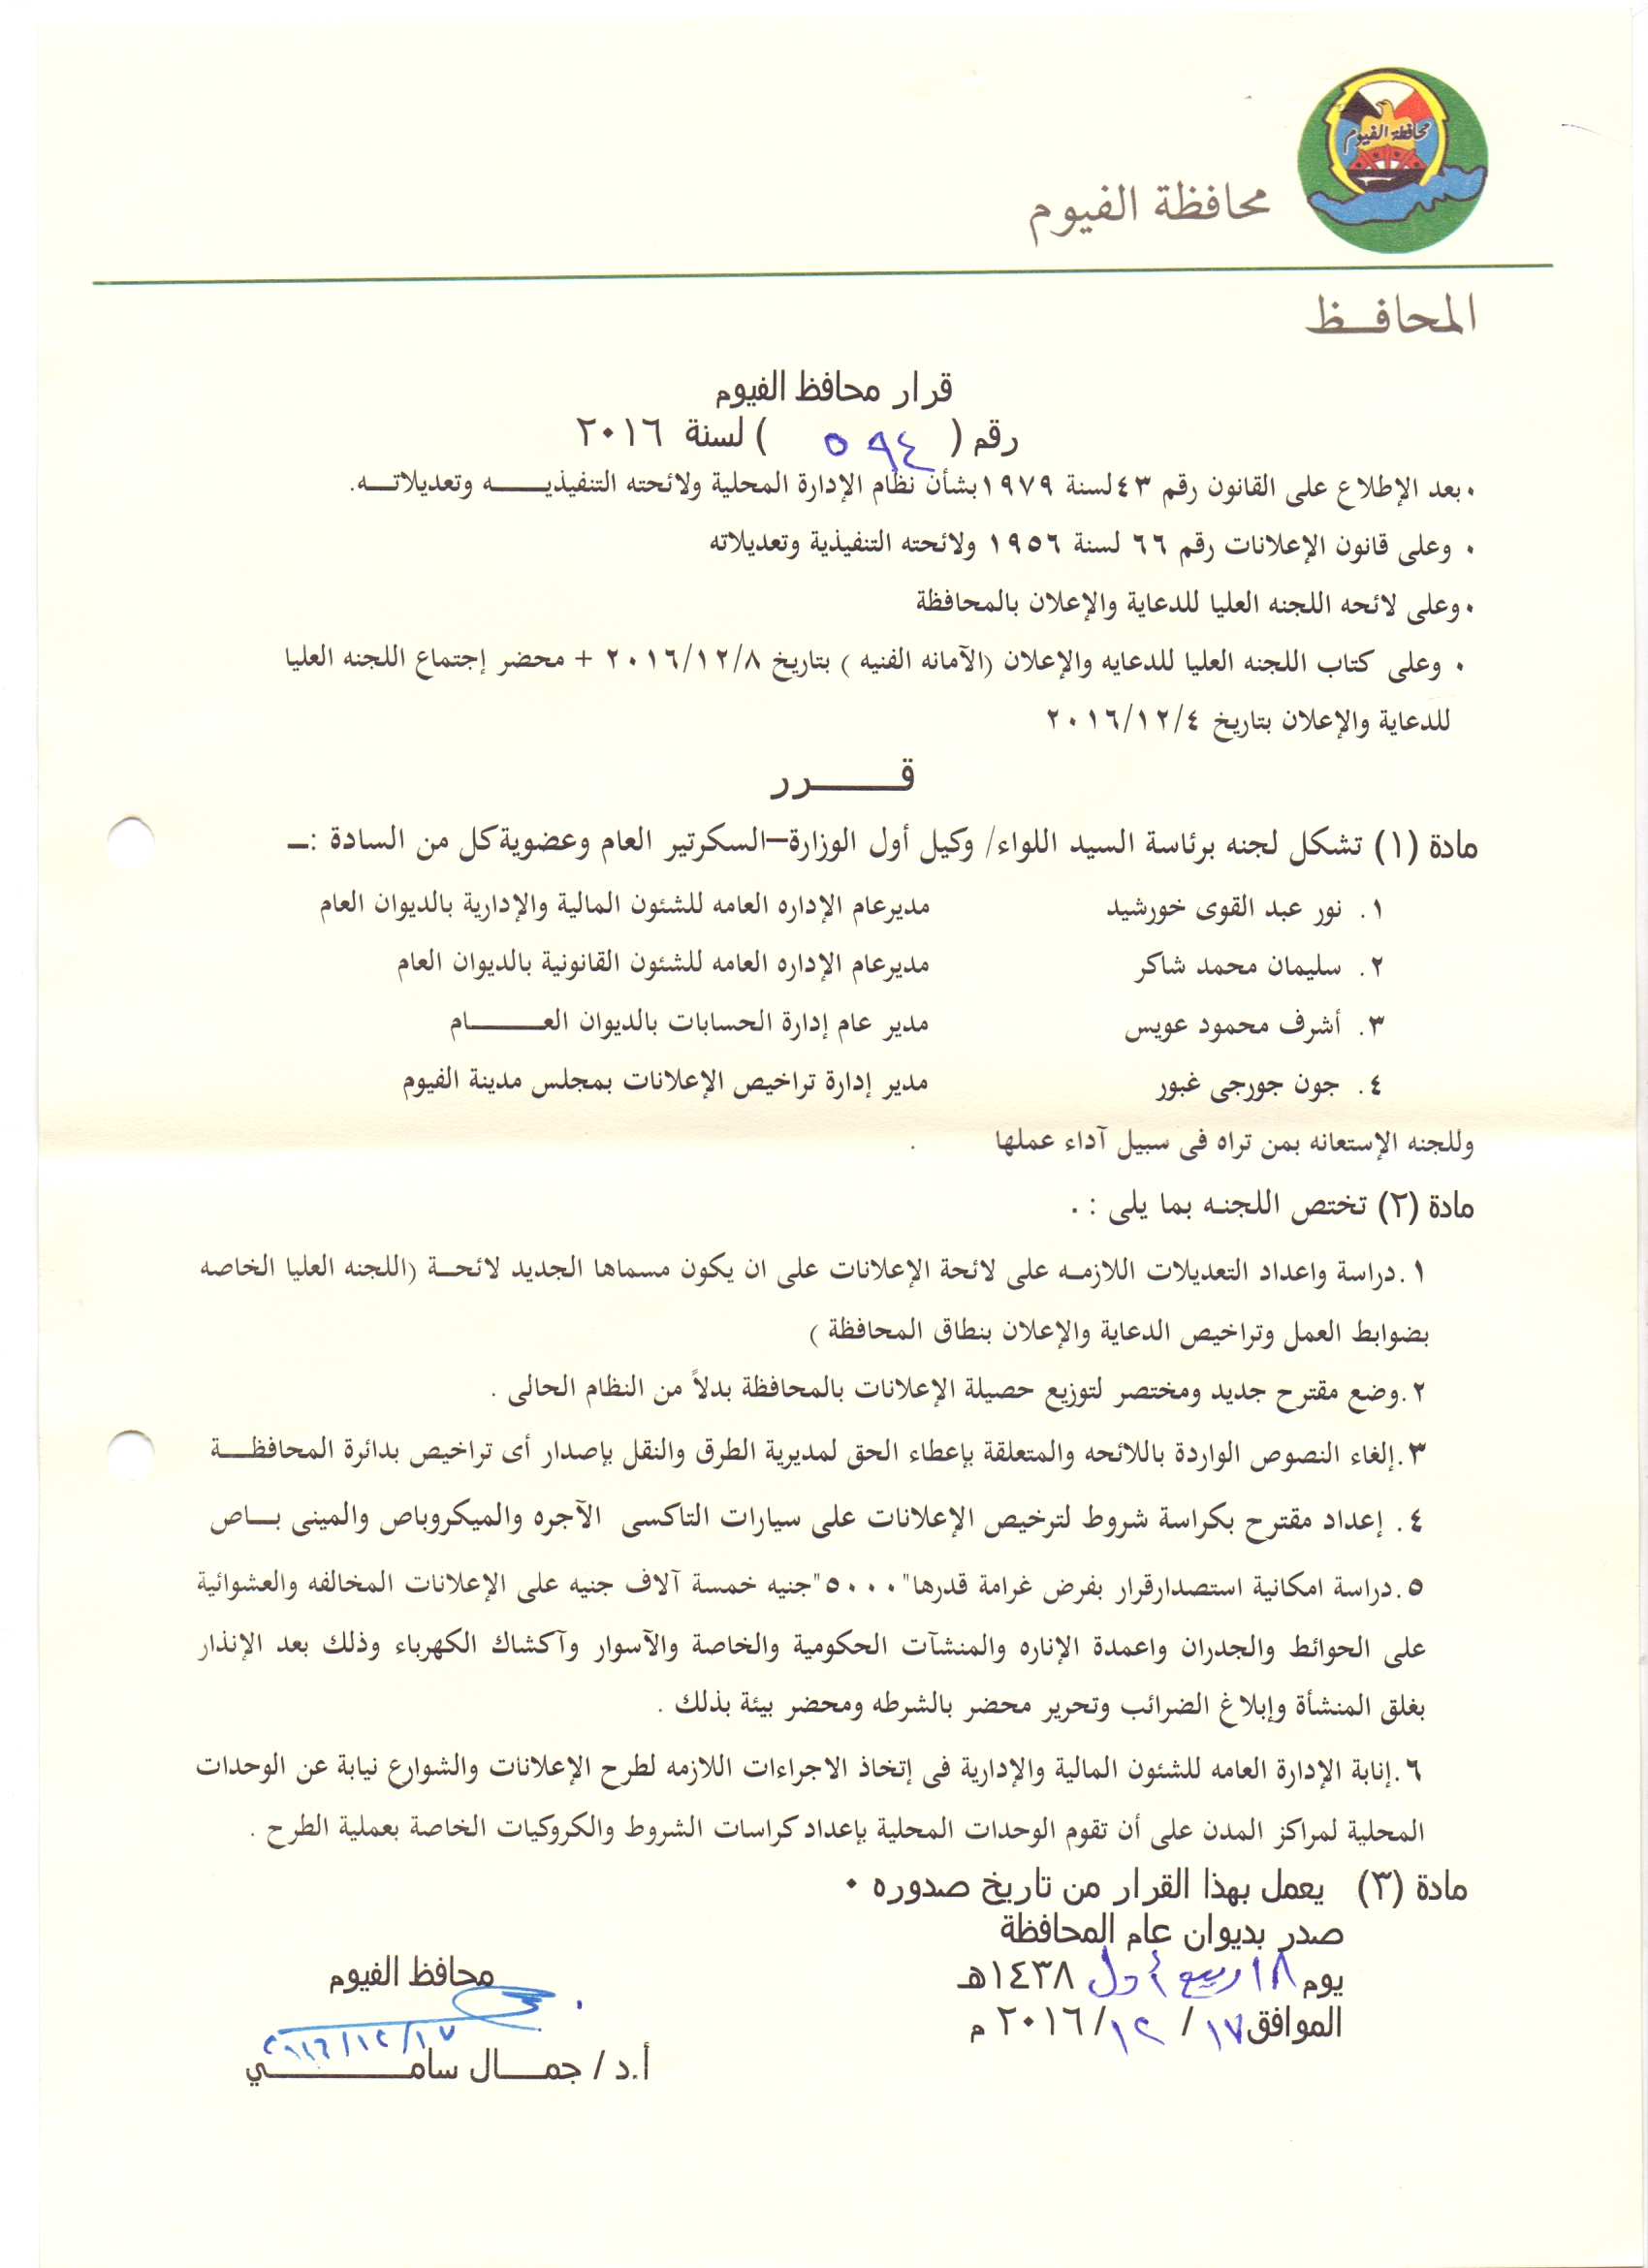 محافظة الفيوم
محافظة الفيوم
المحافـــظ
قرار محافظ الفيوم
رقم ( ٥٩٤ ) لسنة ٢٠١٦
٠ بعد الإطلاع على القانون رقم ٤٣ لسنة ١٩٧٩ بشأن نظام الإدارة المحلية ولائحته التنفيذيـــــه وتعديلاتـــه.
٠ وعلى قانون الإعلانات رقم ٦٦ لسنة ١٩٥٦ ولائحته التنفيذية وتعديلاته
٠ وعلى لائحه اللجنه العليا للدعاية والإعلان بالمحافظة
٠ وعلى كتاب اللجنه العليا للدعايه والإعلان (الآمانه الفنيه ) بتاريخ ٢٠١٦/١٢/٨ + محضر إجتماع اللجنه العليا
للدعاية والإعلان بتاريخ ٢٠١٦/١٢/٤
قـــــــرر
مادة (١) تشكل لجنه برئاسة السيد اللواء/ وكيل أول الوزارة–السكرتير العام وعضوية كل من السادة :ــ
١. نور عبد القوى خورشيد مديرعام الإداره العامه للشئون المالية والإدارية بالديوان العام
٢. سليمان محمد شاكر مديرعام الإداره العامه للشئون القانونية بالديوان العام
٣. أشرف محمود عويس مدير عام إدارة الحسابات بالديوان العـــــــام
٤. جون جورجى غبور مدير إدارة تراخيص الإعلانات بمجلس مدينة الفيوم
وللجنه الإستعانه بمن تراه فى سبيل آداء عملها .
مادة (٢) تختص اللجنـه بما يلى : .
١.دراسة واعداد التعديلات اللازمـه على لائحة الإعلانات على ان يكون مسماها الجديد لائحــة (اللجنه العليا الخاصه
بضوابط العمل وتراخيص الدعاية والإعلان بنطاق المحافظة )
٢.وضع مقترح جديد ومختصر لتوزيع حصيلة الإعلانات بالمحافظة بدلاً من النظام الحالى .
٣.إلغاء النصوص الواردة باللائحه والمتعلقة بإعطاء الحق لمديرية الطرق والنقل بإصدار أى تراخيص بدائرة المحافظــــة
٤. إعداد مقترح بكراسة شروط لترخيص الإعلانات على سيارات التاكسى الآجره والميكروباص والمينى بـــاص
٥.دراسة امكانية استصدارقرار بفرض غرامة قدرها"٥٠٠٠"جنيه خمسة آلاف جنيه على الإعلانات المخالفه والعشوائية
على الحوائط والجدران واعمدة الإناره والمنشآت الحكومية والخاصة والآسوار وآكشاك الكهرباء وذلك بعد الإنذار
بغلق المنشأة وإبلاغ الضرائب وتحرير محضر بالشرطه ومحضر بيئة بذلك .
٦.إنابة الإدارة العامه للشئون المالية والإدارية فى إتخاذ الاجراءات اللازمه لطرح الإعلانات والشوارع نيابة عن الوحدات
المحلية لمراكز المدن على أن تقوم الوحدات المحلية بإعداد كراسات الشروط والكروكيات الخاصة بعملية الطرح .
مادة (٣) يعمل بهذا القرار من تاريخ صدوره ٠
صدر بديوان عام المحافظة
يوم ١٨ ربيع أول ١٤٣٨هـ
الموافق ١٧ / ١٢ /٢٠١٦ م
محافظ الفيوم
٢٠١٦/١٢/١٧
أ.د / جمـــال سامــــــــــي